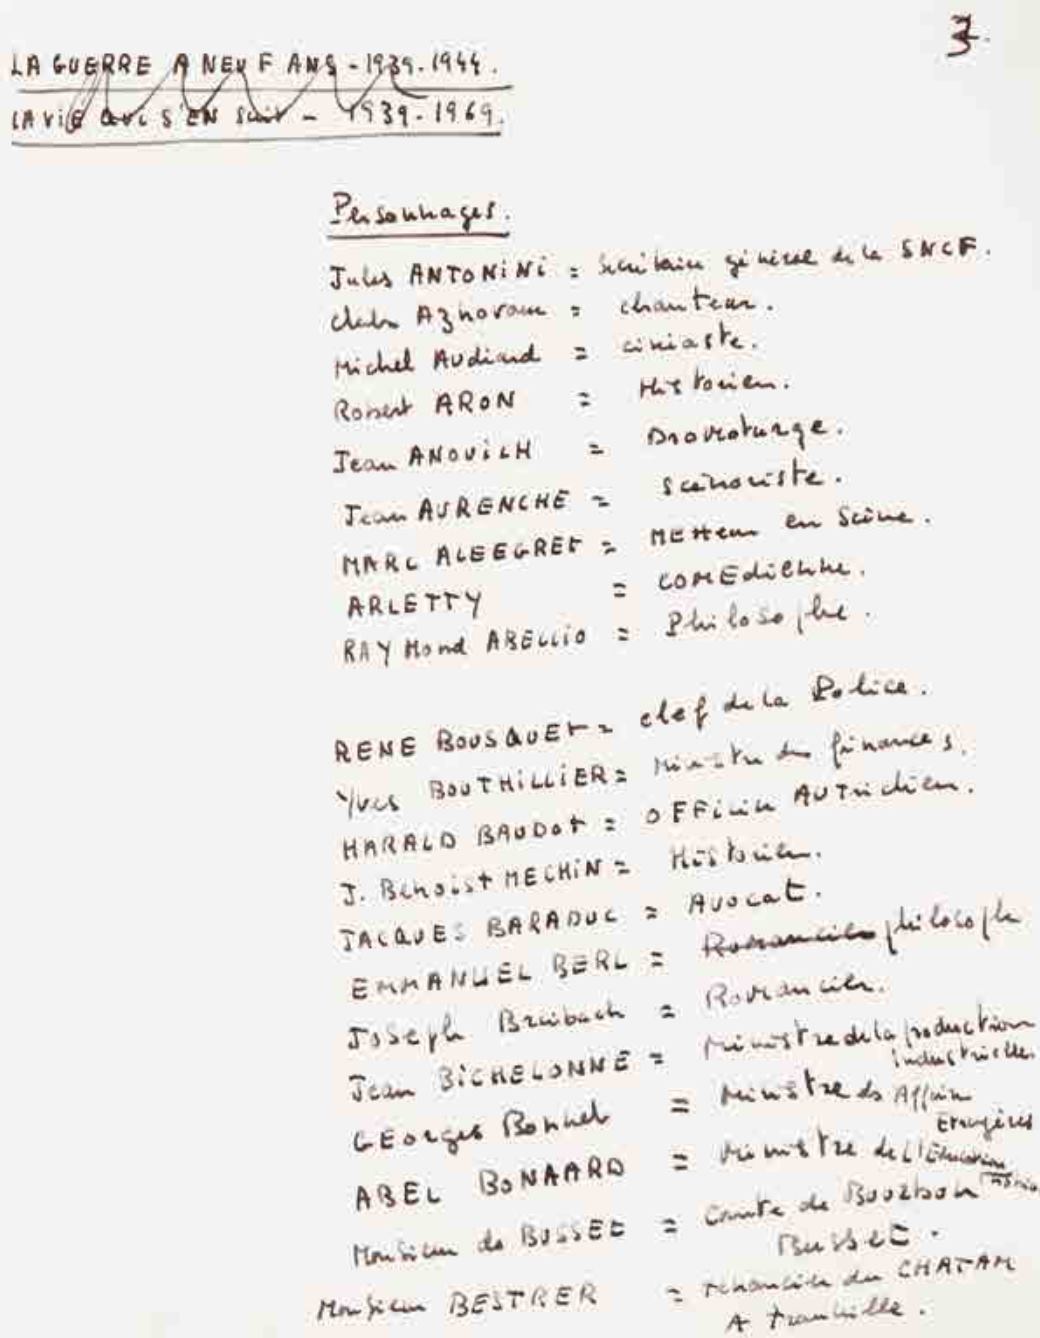 3.
LA GUERRE A NEUF ANS - 1939. 1944.
LA VIE QUI S'EN Suit - 1939. 1969.
Personnages.
Jules ANTONINI = Secrétaire général de la SNCF.
Charles Aznavour = chanteur.
Michel Audiard = cinéaste.
Robert ARON = Historien.
Jean ANOUILH = Dramaturge.
Jean AURENCHE = Scénariste.
MARC ALLEGRET = METTeur en Scène.
ARLETTY = COMEdiEnne.
RAYMond ABELLIO = Philosophe.
RENE BOUSQUET = chef de la Police.
Yves BOUTHILLIER = Ministre des finances.
HARALD BAUDOT = OFFicier AUTrichien.
J. BEnoist MECHIN = Historien.
JACQUES BARADUC = Avocat.
EMMANUEL BERL = Romancier philosophe
Joseph Breibach = Romancier.
Jean BICHELONNE = Ministre de la production
industrielle.
GEorges Bonnet = Ministre des Affaires
Etrangères
ABEL BONAARD = Ministre de l'Education
Monsieur de BUSSET = Comte de Bourbon
Busset.
Monsieur BESTRER = du CHATAM
A